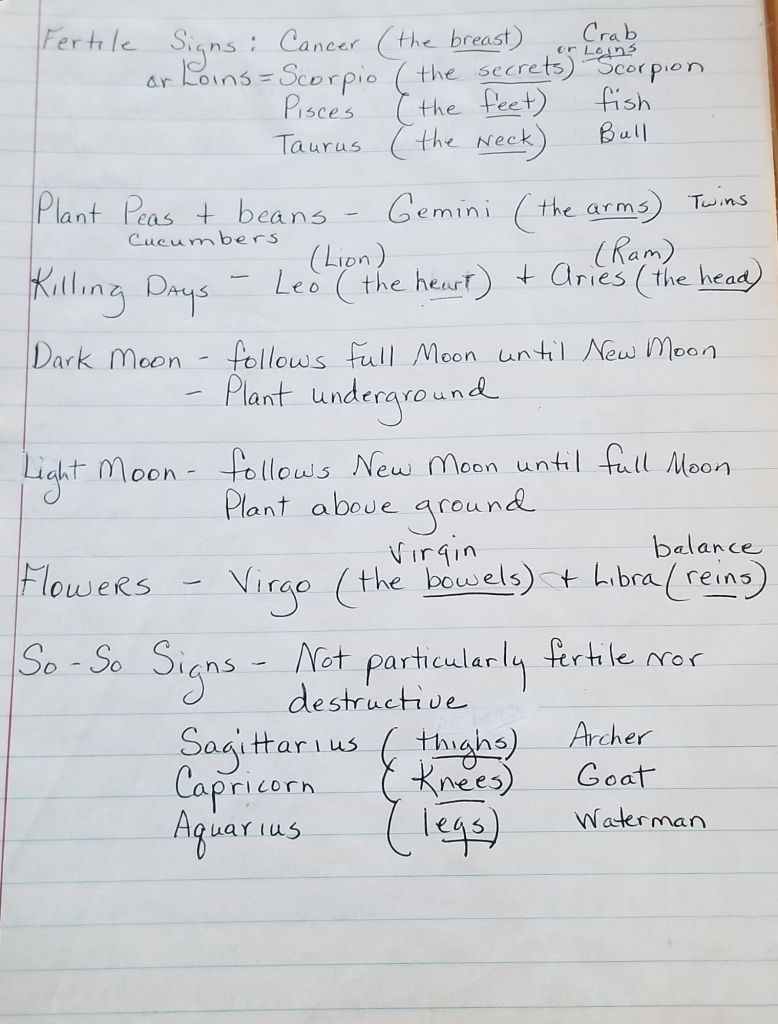 Fertile Signs: Cancer (the breast) Crab
or Loins
or Loins = Scorpio (the secrets) Scorpion
Pisces (the feet) fish
Taurus (the Neck) Bull
Plant Peas + beans - Gemini (the arms) Twins
Cucumbers
(Lion) (Ram)
Killing Days - Leo (the heart) + Aries (the head)
Dark Moon - follows full Moon until New Moon
- Plant underground
Light Moon - follows New Moon until full Moon
Plant above ground
Virgin balance
Flowers - Virgo (the bowels) + Libra (reins)
So-So Signs - Not particularly fertile nor
destructive
Sagittarius (thighs) Archer
Capricorn (Knees) Goat
Aquarius (legs) Waterman